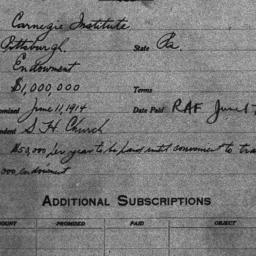 Carnegie Institute
Pittsburgh. State Pa.
Endowment
$1,000,000 Terms
June 11, 1914 Date Paid RAF June 1
S. H. Church
per year to be paid until convenient to
000 endowment
ADDITIONAL SUBSCRIPTIONS
PROMISED PAID OBJECT